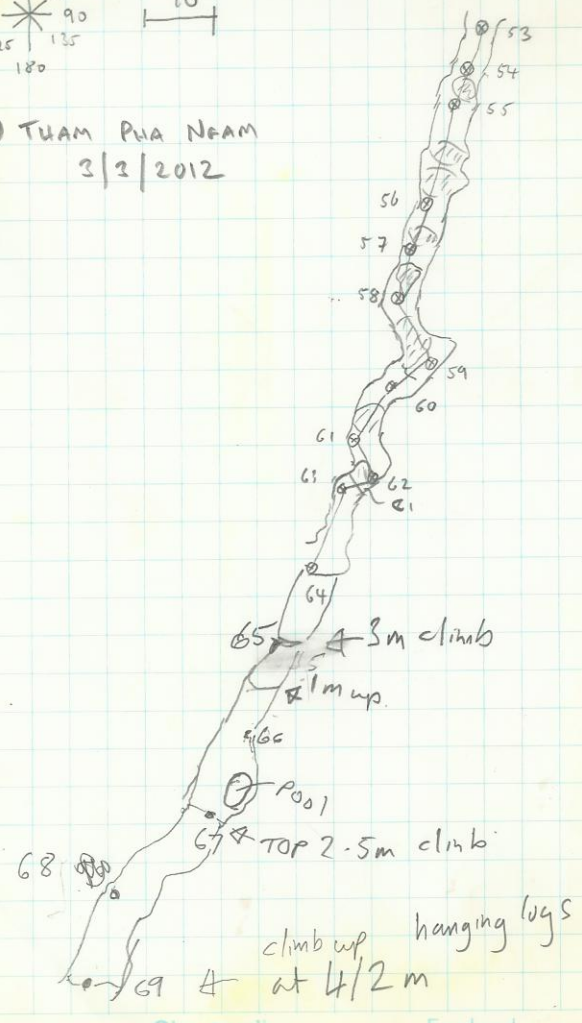 10
90
135
180
THAM PHA NGAM
3/3/2012
53
54
55
56
57
58
59
60
61
62
63
C1
64
65
3m climb
1m up.
66
Pool
67
TOP 2.5m climb
68
hanging logs
climb up
69
at 4/2 m